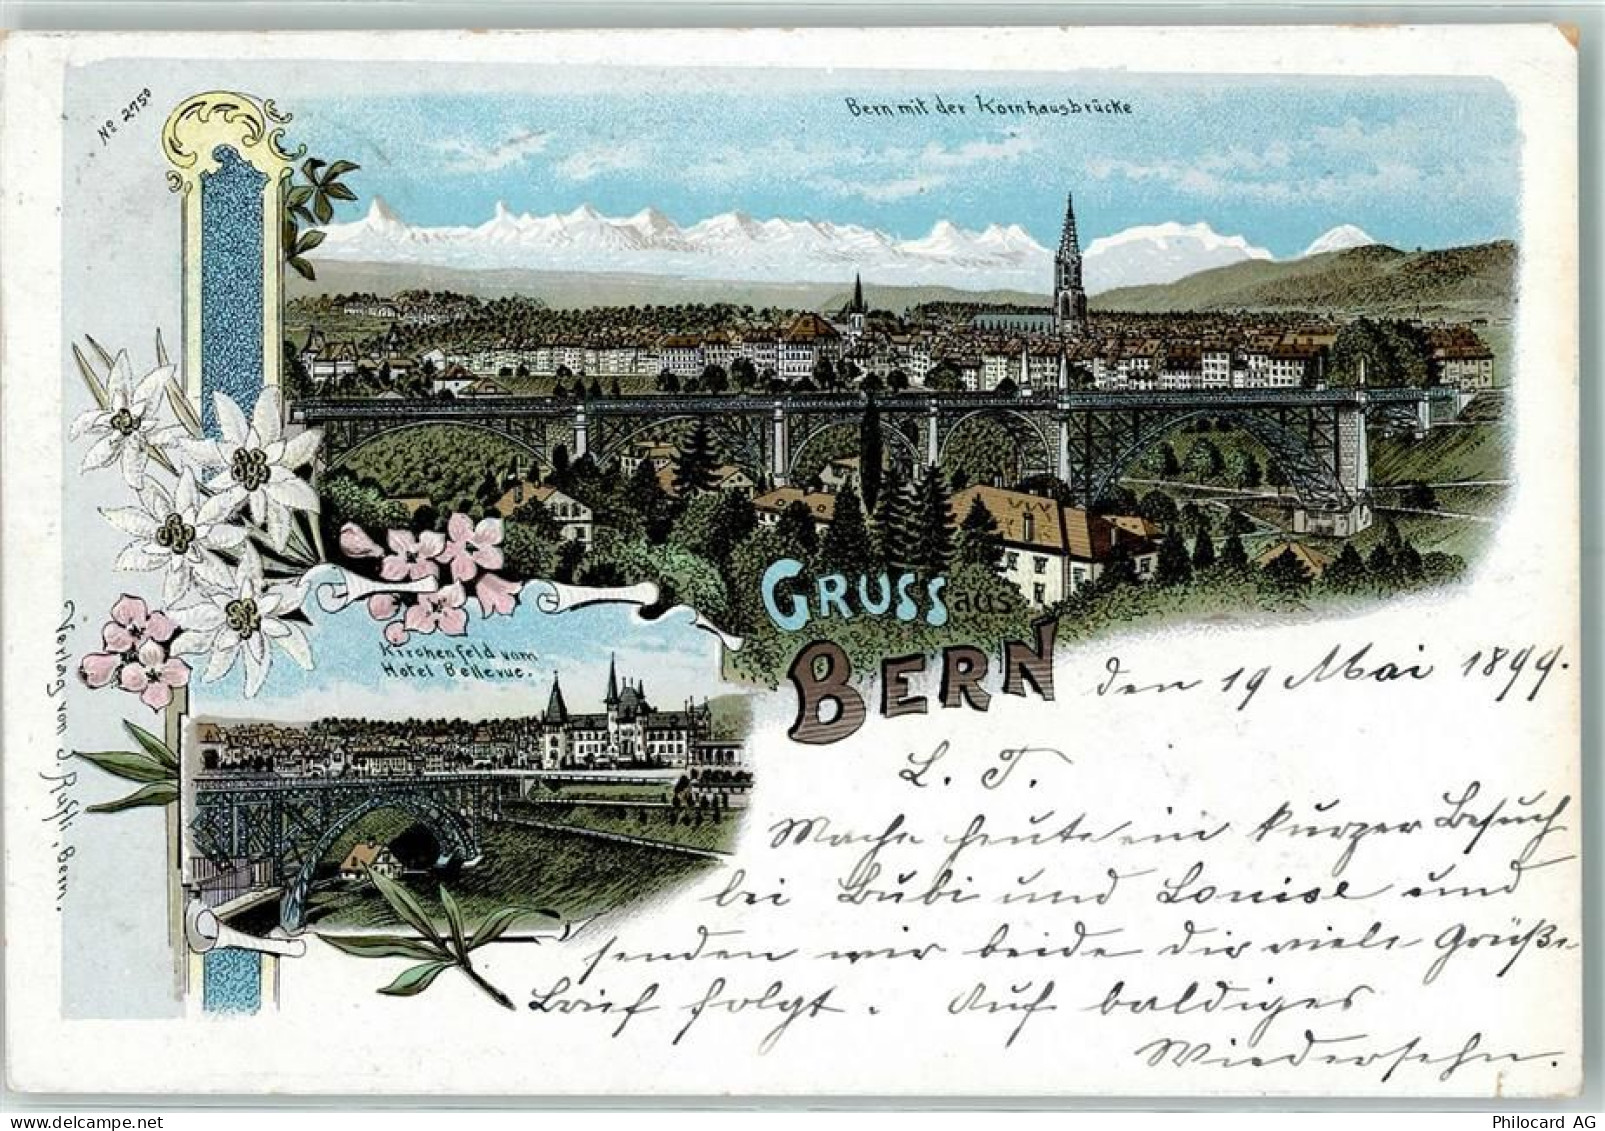 No 2750
Bern mit der Kornhausbrücke
Kirchenfeld vom
Hotel Bellevue.
GRUSS aus
BERN
den 19 Mai 1899.
L. T.
Mache heute ein kurzer Besuch
bei Bubi und Louise und
senden wir beide dir viele Grüße
Brief folgt. Auf baldiges
Wiedersehn.
Verlag von Bern.
Philocard AG